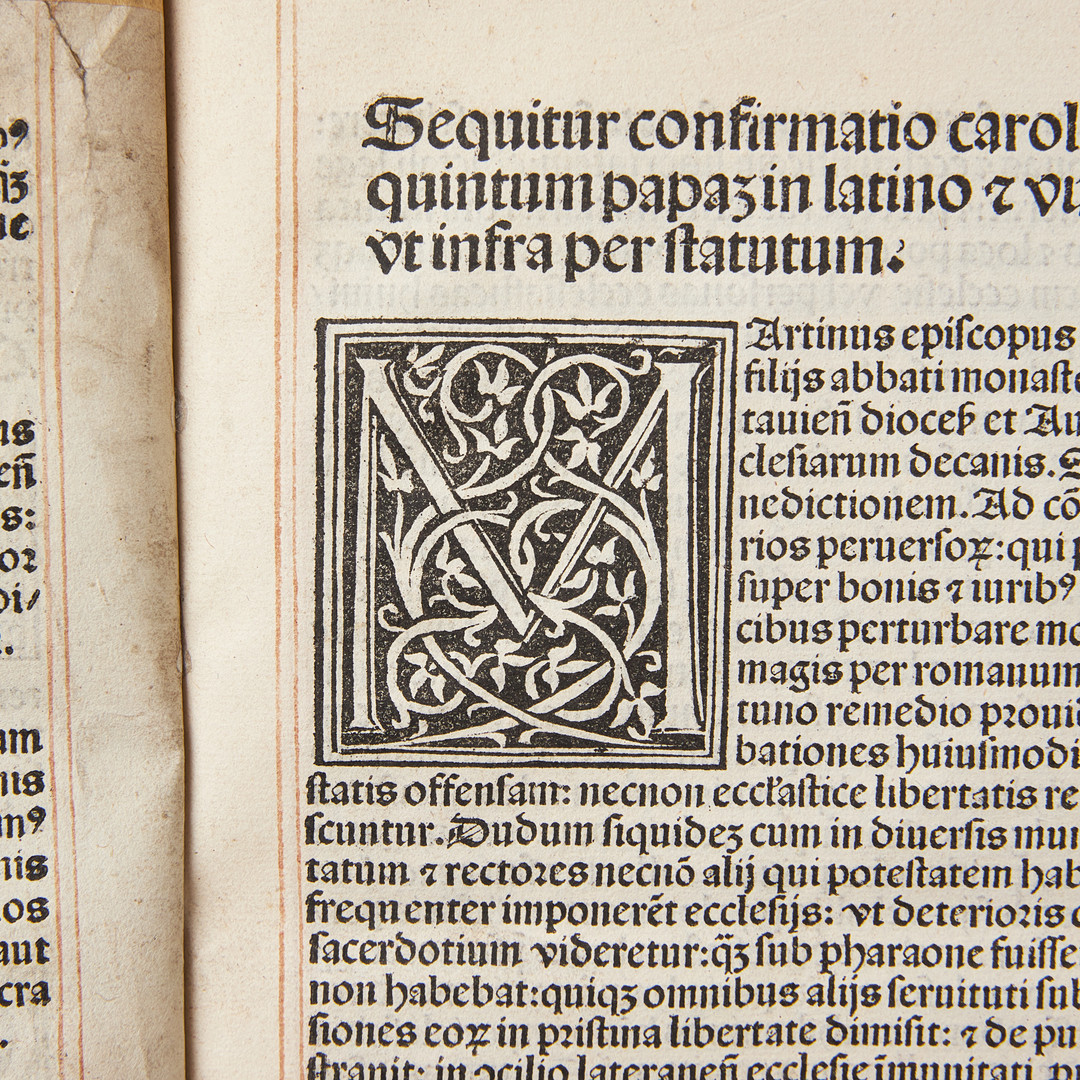 ꝰ
ſiʒ
ne
ns
eñ
s:
oꝛ
oi/
am
nis
mꝰ
nis
os
aut
cra
Sequitur confirmatio carol
quintum papaʒ in latino ⁊ vu
vt infra per ſtatutum.
MArtinus epiſcopus
filijs abbati monaſte
tauieñ dioceſ et Au
cleſiarum decanis. S
nedictionem. Ad cō
rios peruerſoꝝ: qui p
ſuper bonis ⁊ iuribꝰ
cibus perturbare mo
magis per romanum
tuno remedio proui
bationes huiuſmodi
ſtatis offenſam: necnon eccłaſtice libertatis re
ſcuntur. Dudum ſiquideʒ cum in diuerſis mun
tatum ⁊ rectoꝛes necnō alij qui poteſtatem hab
frequenter imponerēt eccleſijs: vt deterioꝛis c
ſacerdotium videretur: q̃ʒ ſub pharaone fuiſſe
non habebat: quiqʒ omnibus alijs ſeruituti ſub
ſiones eoꝝ in pꝛiſtina libertate dimiſit: ⁊ de pu
ſtranit: in ↄcilio lateraneñ eccleſie īmunitati